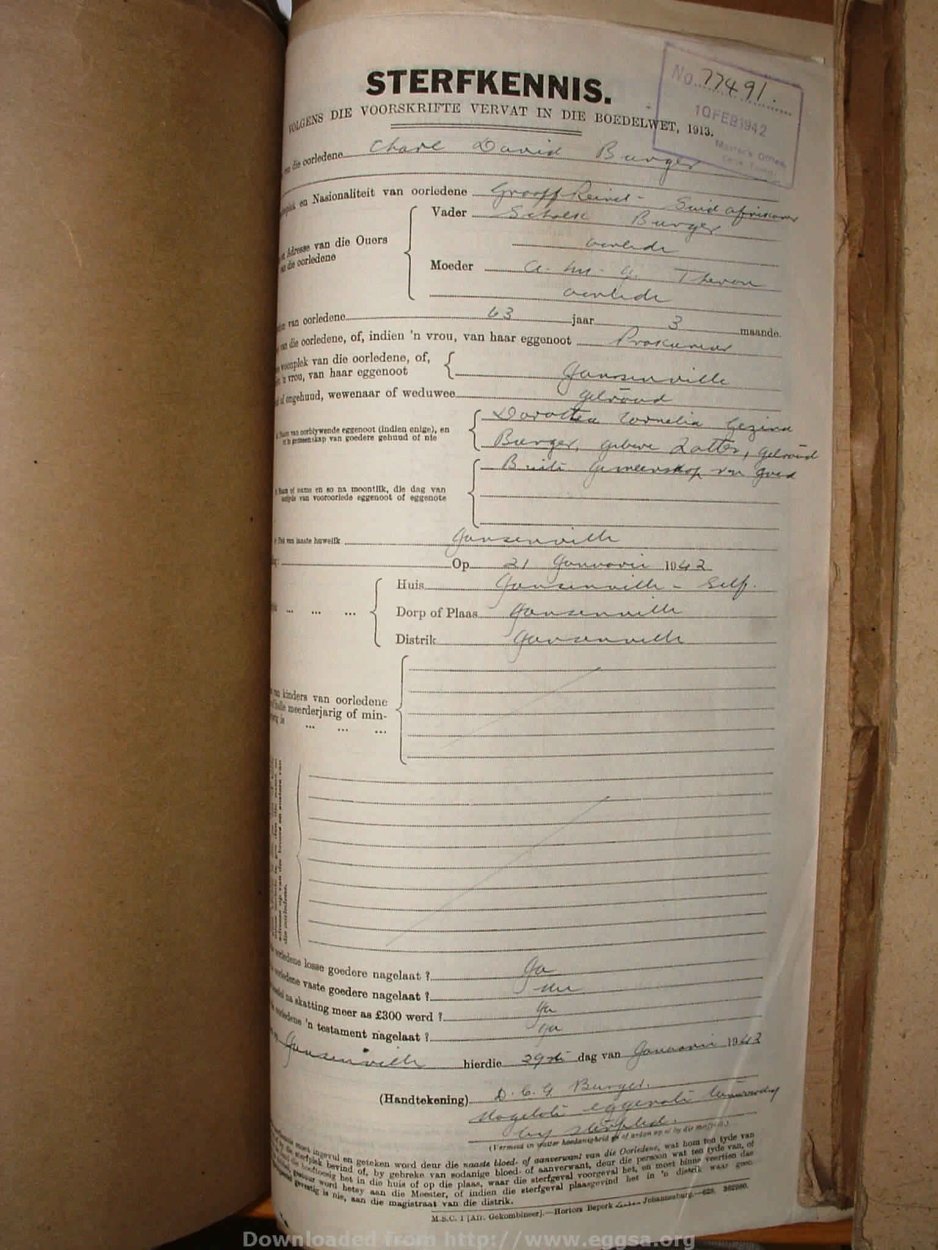 STERFKENNIS.
No. 77491.
10 FEB 1942
VOLGENS DIE VOORSKRIFTE VERVAT IN DIE BOEDELWET, 1913.
van die oorledene Charl David Burger
en Nasionaliteit van oorledene Graaff Reinet - Suid afrikaner
Vader Schalk Burger
Adresse van die Ouers
van die oorledene
oorlede
Moeder A. M. G. Theron
oorlede
van oorledene 63 jaar 3 maande.
van die oorledene, of, indien 'n vrou, van haar eggenoot Prokureur
woonplek van die oorledene, of,
'n vrou, van haar eggenoot
Jansenville
of ongehuud, wewenaar of weduwee Getroud
Naam van oorblywende eggenoot (indien enige), en
of in gemeenskap van goedere gehuud of nie
Dorothea Cornelia Gezina
Burger, gebore Lotter, getroud
Buite Gemeenskap van goed
Naam of name en so na moontlik, die dag van
van vooroorlede eggenoot of eggenote
Plek van laaste huwelik Jansenville
Op 21 Januarie 1942
Huis Jansenville - Self.
Dorp of Plaas Jansenville
Distrik Jansenville
van kinders van oorledene
meerderjarig of min-
die oorledene.
oorledene losse goedere nagelaat ? Ja
oorledene vaste goedere nagelaat ?
na skatting meer as £300 werd ? Ja
oorledene 'n testament nagelaat ? Ja
Jansenville hierdie 29ste dag van Januarie 1942
(Handtekening) D. C. G. Burger.
Nagelate eggenote teenwoordig
by sterfbed.
ingevul en geteken word deur die naaste bloed- of aanverwant van die Oorledene, wat hom ten tyde van
sterfplek bevind of, by gebreke van sodanige bloed- of aanverwant, deur die persoon wat ten tyde van, of
het in die huis of op die plaas, waar die sterfgeval voorgeval het, en moet binne veertien dae
word hetsy aan die Meester, of indien die sterfgeval plaasgevind het in 'n distrik waar geen
gevestig is nie, aan die magistraat van die distrik.
M.S.C. 1 [Afr. Gekombineer].—Hortors Beperk Johannesburg.
Downloaded from http://www.eggsa.org